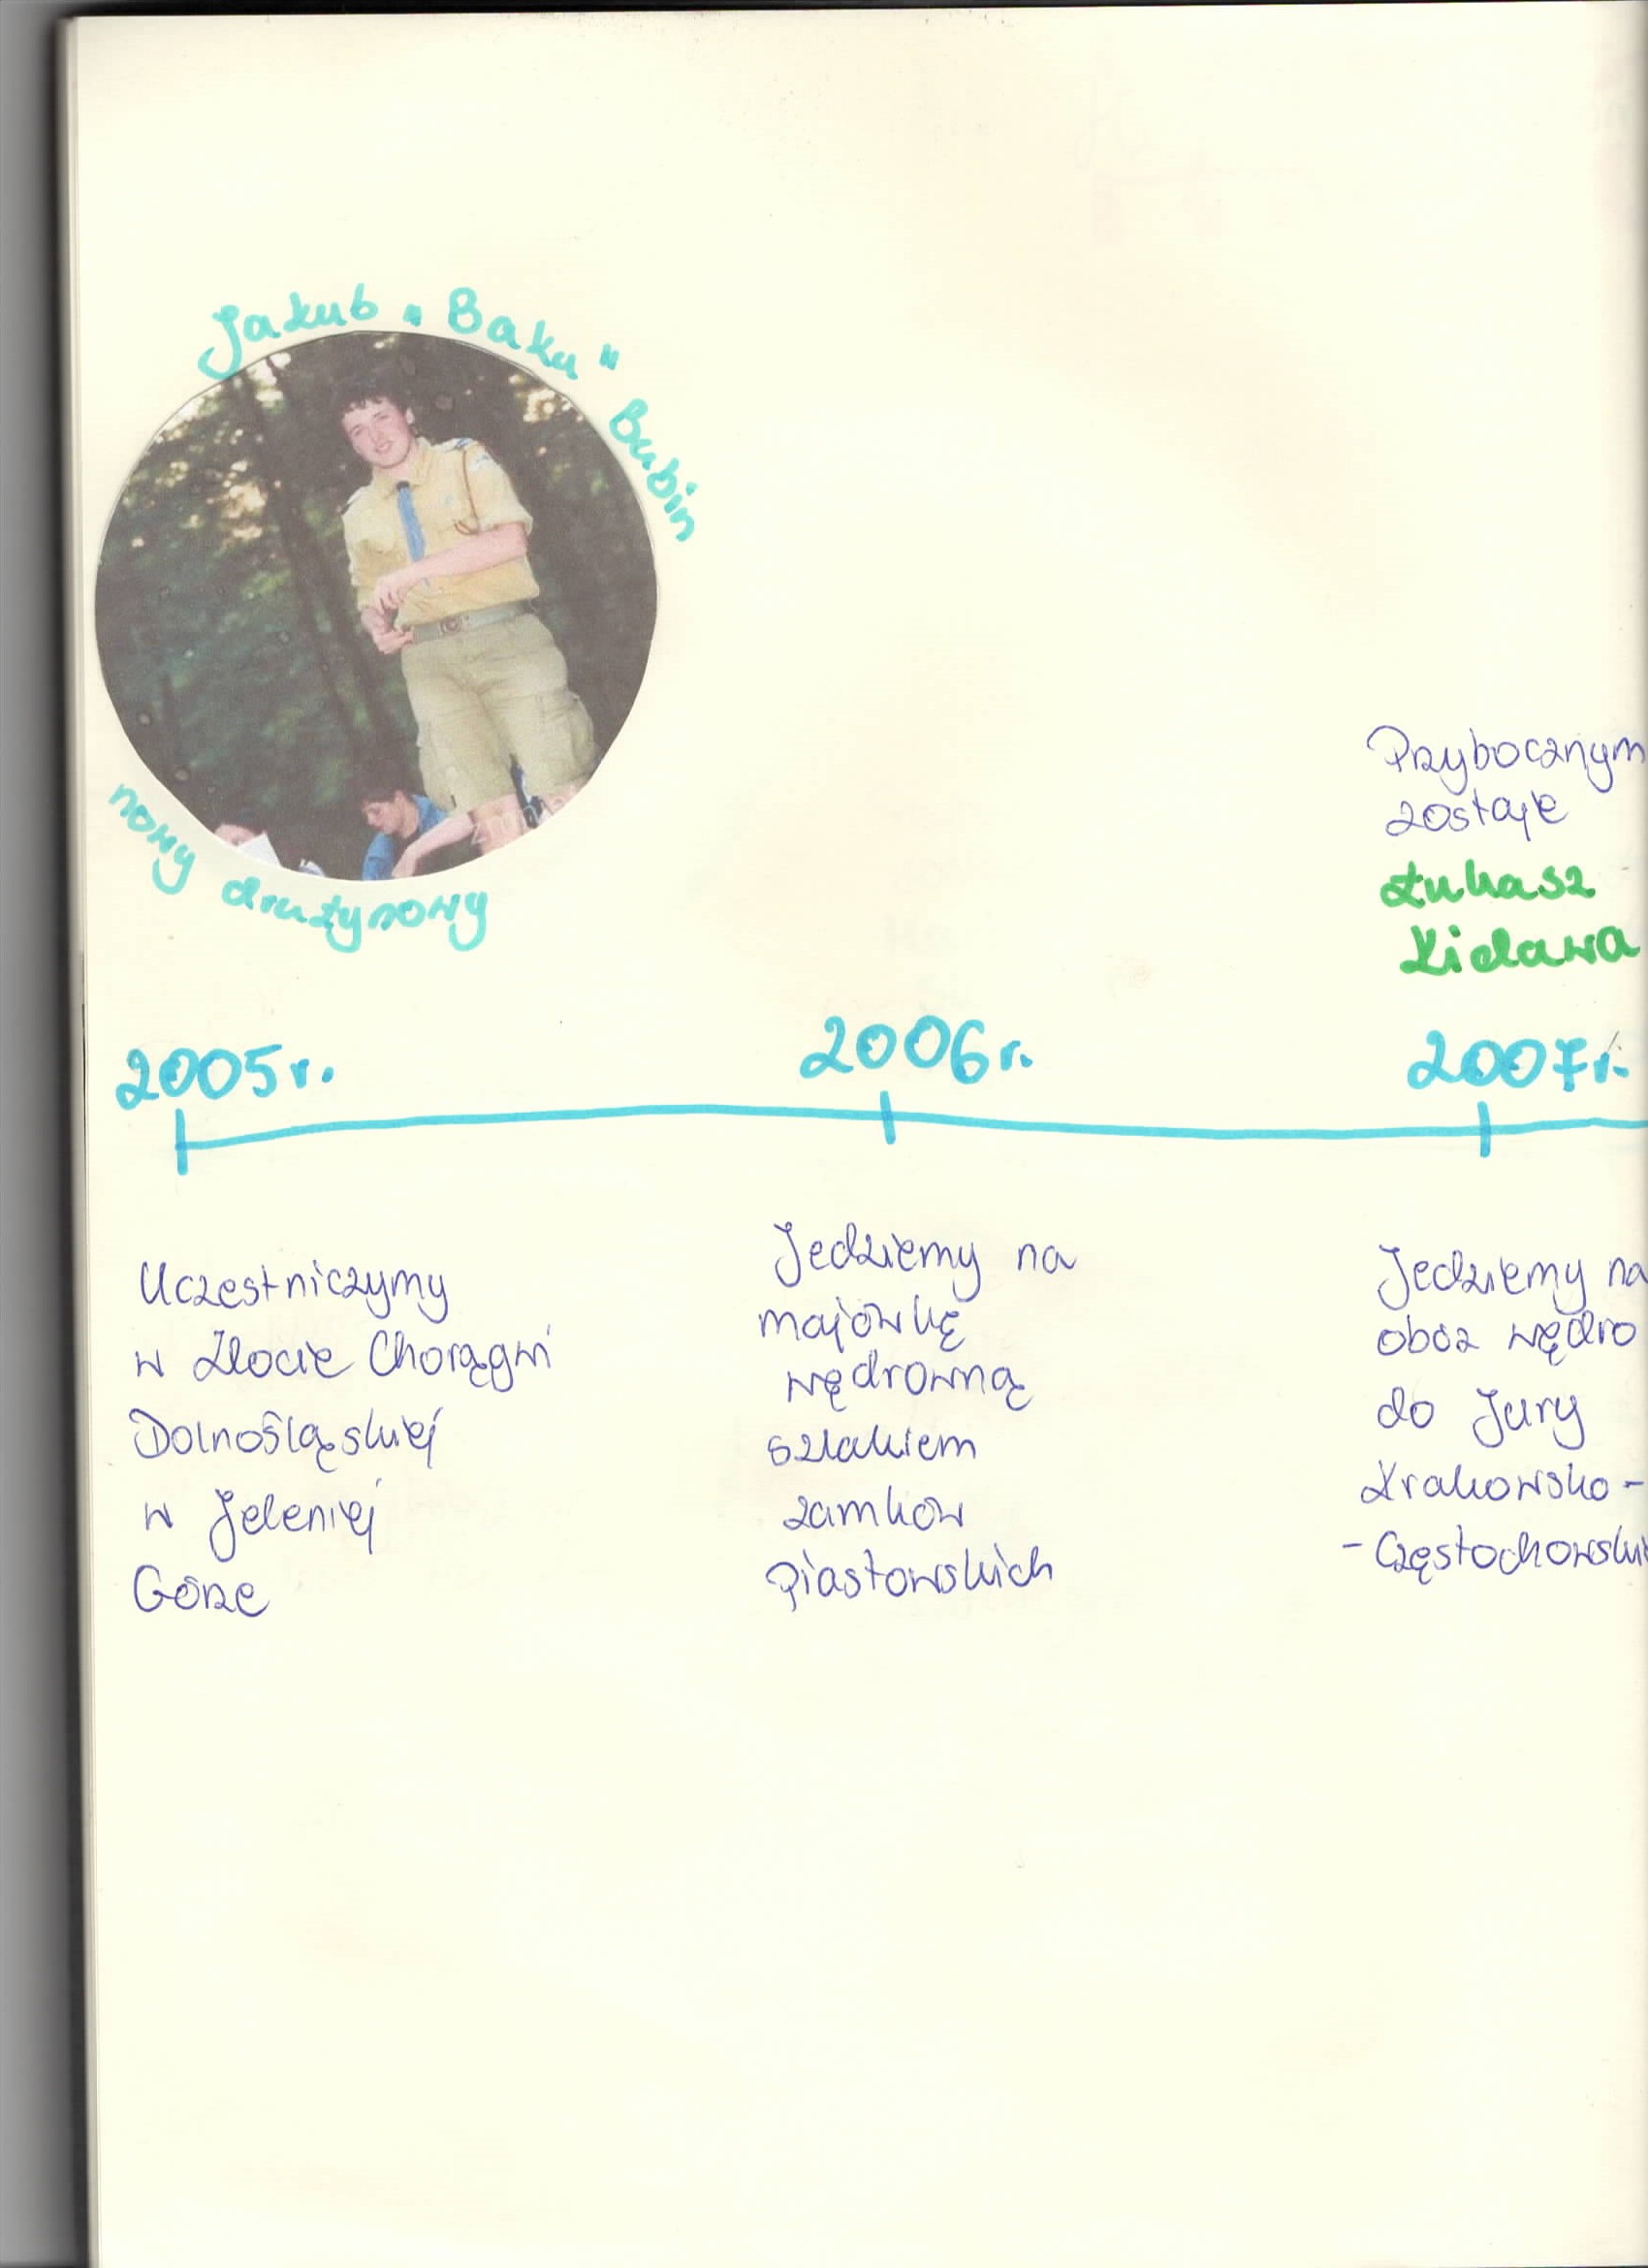 Jakub "Baku" Bubin
nowy drużynowy
Przybocznym
zostaje
Łukasz
Kidawa
2005r.
2006r.
2007r.
Uczestniczymy
w Zlocie Chorągwi
Dolnośląskiej
w Jeleniej
Górze
Jedziemy na
majówkę
wędrowną
szlakiem
zamków
Piastowskich
Jedziemy na
obóz wędro
do Jury
Krakowsko-
-Częstochowski